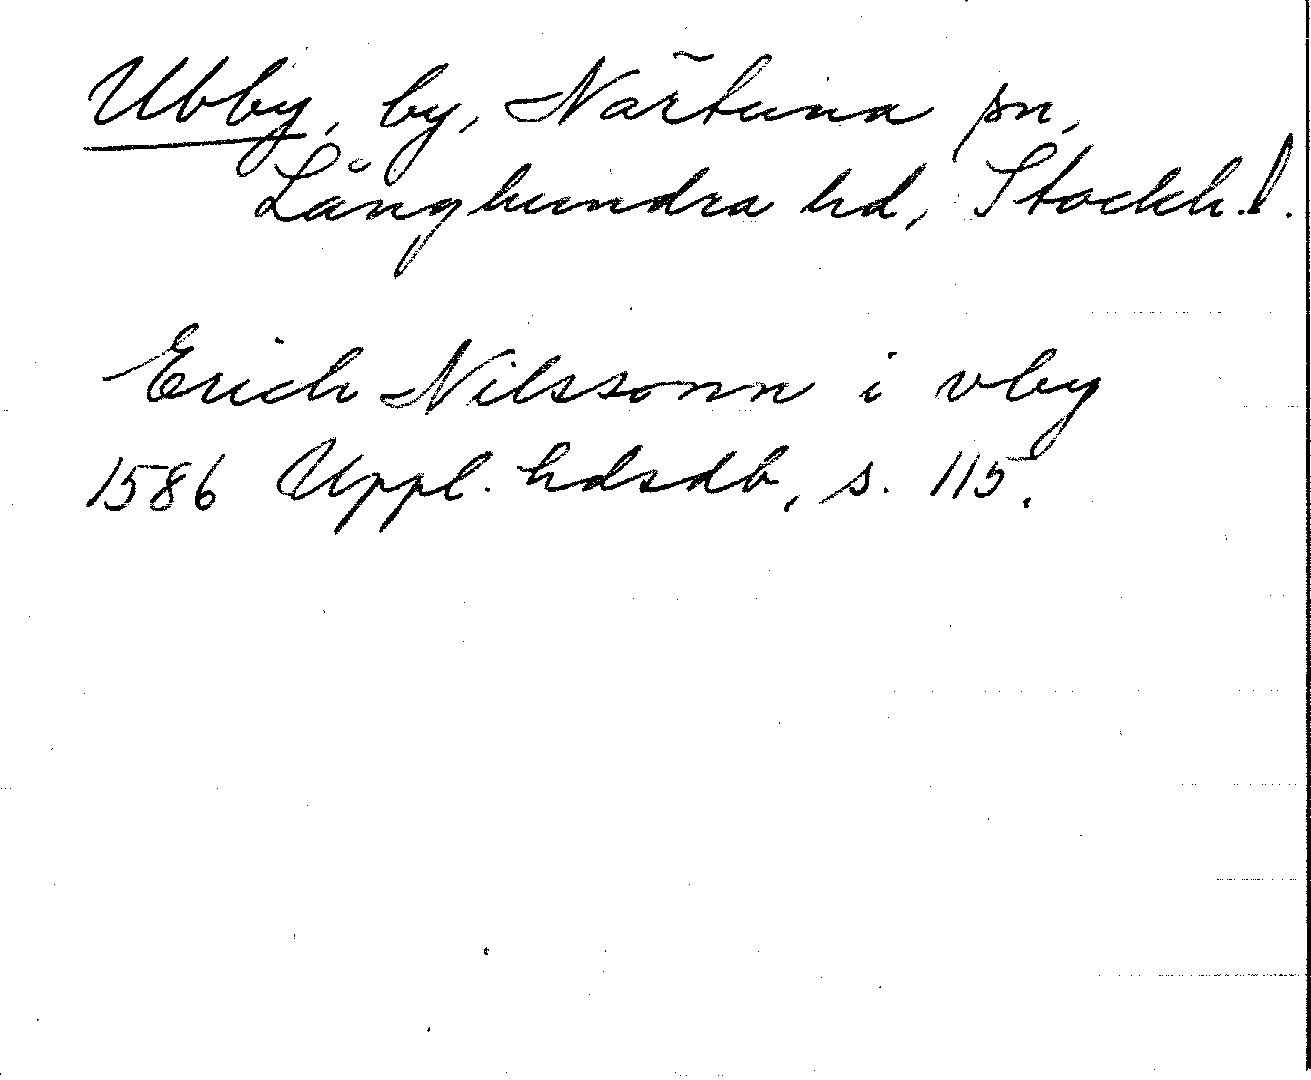 Ubby, by, Närtuna sn,
Långhundra hd, Stockh. l.
Erich Nilssonn i vby
1586 Uppl. hdsdb, s. 115.